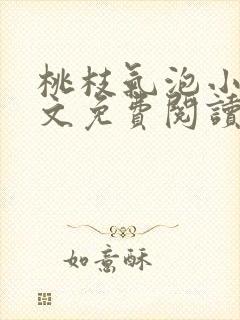 桃枝氣泡小
文免費閱讀
如意酥